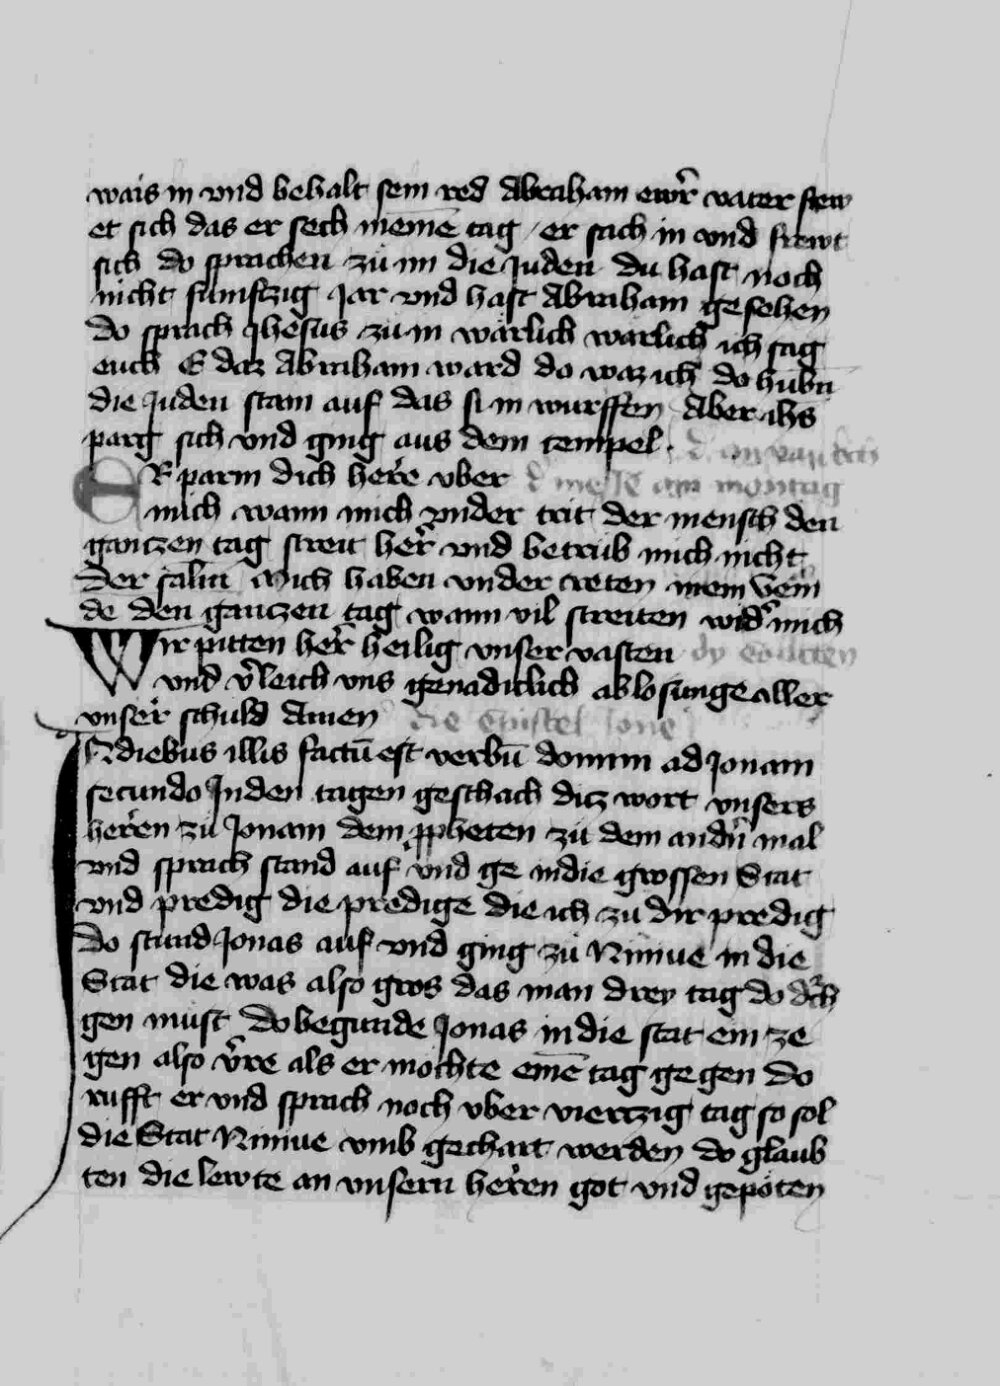 wais in vnd behalt sein red Abraham ewr̃ vater frew
et sich das er sech meinē tag / er sach in vnd frewt
sich do sprachen zů im die Juden du hast noch
nicht fumftzig Jar vnd hast Abraham gesehen
do sprach Jhesus zů in wärlich wärlich ich sag
euch E daz Abraham ward do waz ich do hůbn̄
die Juden stain auf das si in wurffen Aber ihs
parg sich vnd ging aus dem tempel ·
ER parm dich herˀe vber d messe am montag
mich wann mich vnder trit der mensch den
gantzen tag streit herˀ vnd betrub mich nicht
Der salm̄ Mich haben vnder treten mein vein
de den ganczen tag wann vil streiten widˀ mich
Wir pitten herˀ heilig vnser vasten dy collecten
vnd vˀleich vns genadiclich ablosunge aller
vnser schuld Amen die Epistel Jone
IN diebus illis factū est verbū domini ad Jonam
secundo Jn den tagen geschach ditz wort vnsers
herˀen zů Jonam dem ꝓpheten zů dem andn̄ mal
vnd sprach stand auf vnd ge in die grossen Stat
vnd predig die predige die ich zu dir predig
Do stund Jonas auf vnd ging zů Niniue in die
Stat die was also gros das man drey tag do dˀch
gen must Do begunde Jonas in die stat ein ze
gen also vˀre als er mochte einē tag gegen Do
rufft er vnd sprach noch vber viertzig tag so sol
die Stat Niniue vmb gechart werden do glaub
ten die lewte an vnsern herˀen got vnd gepoten